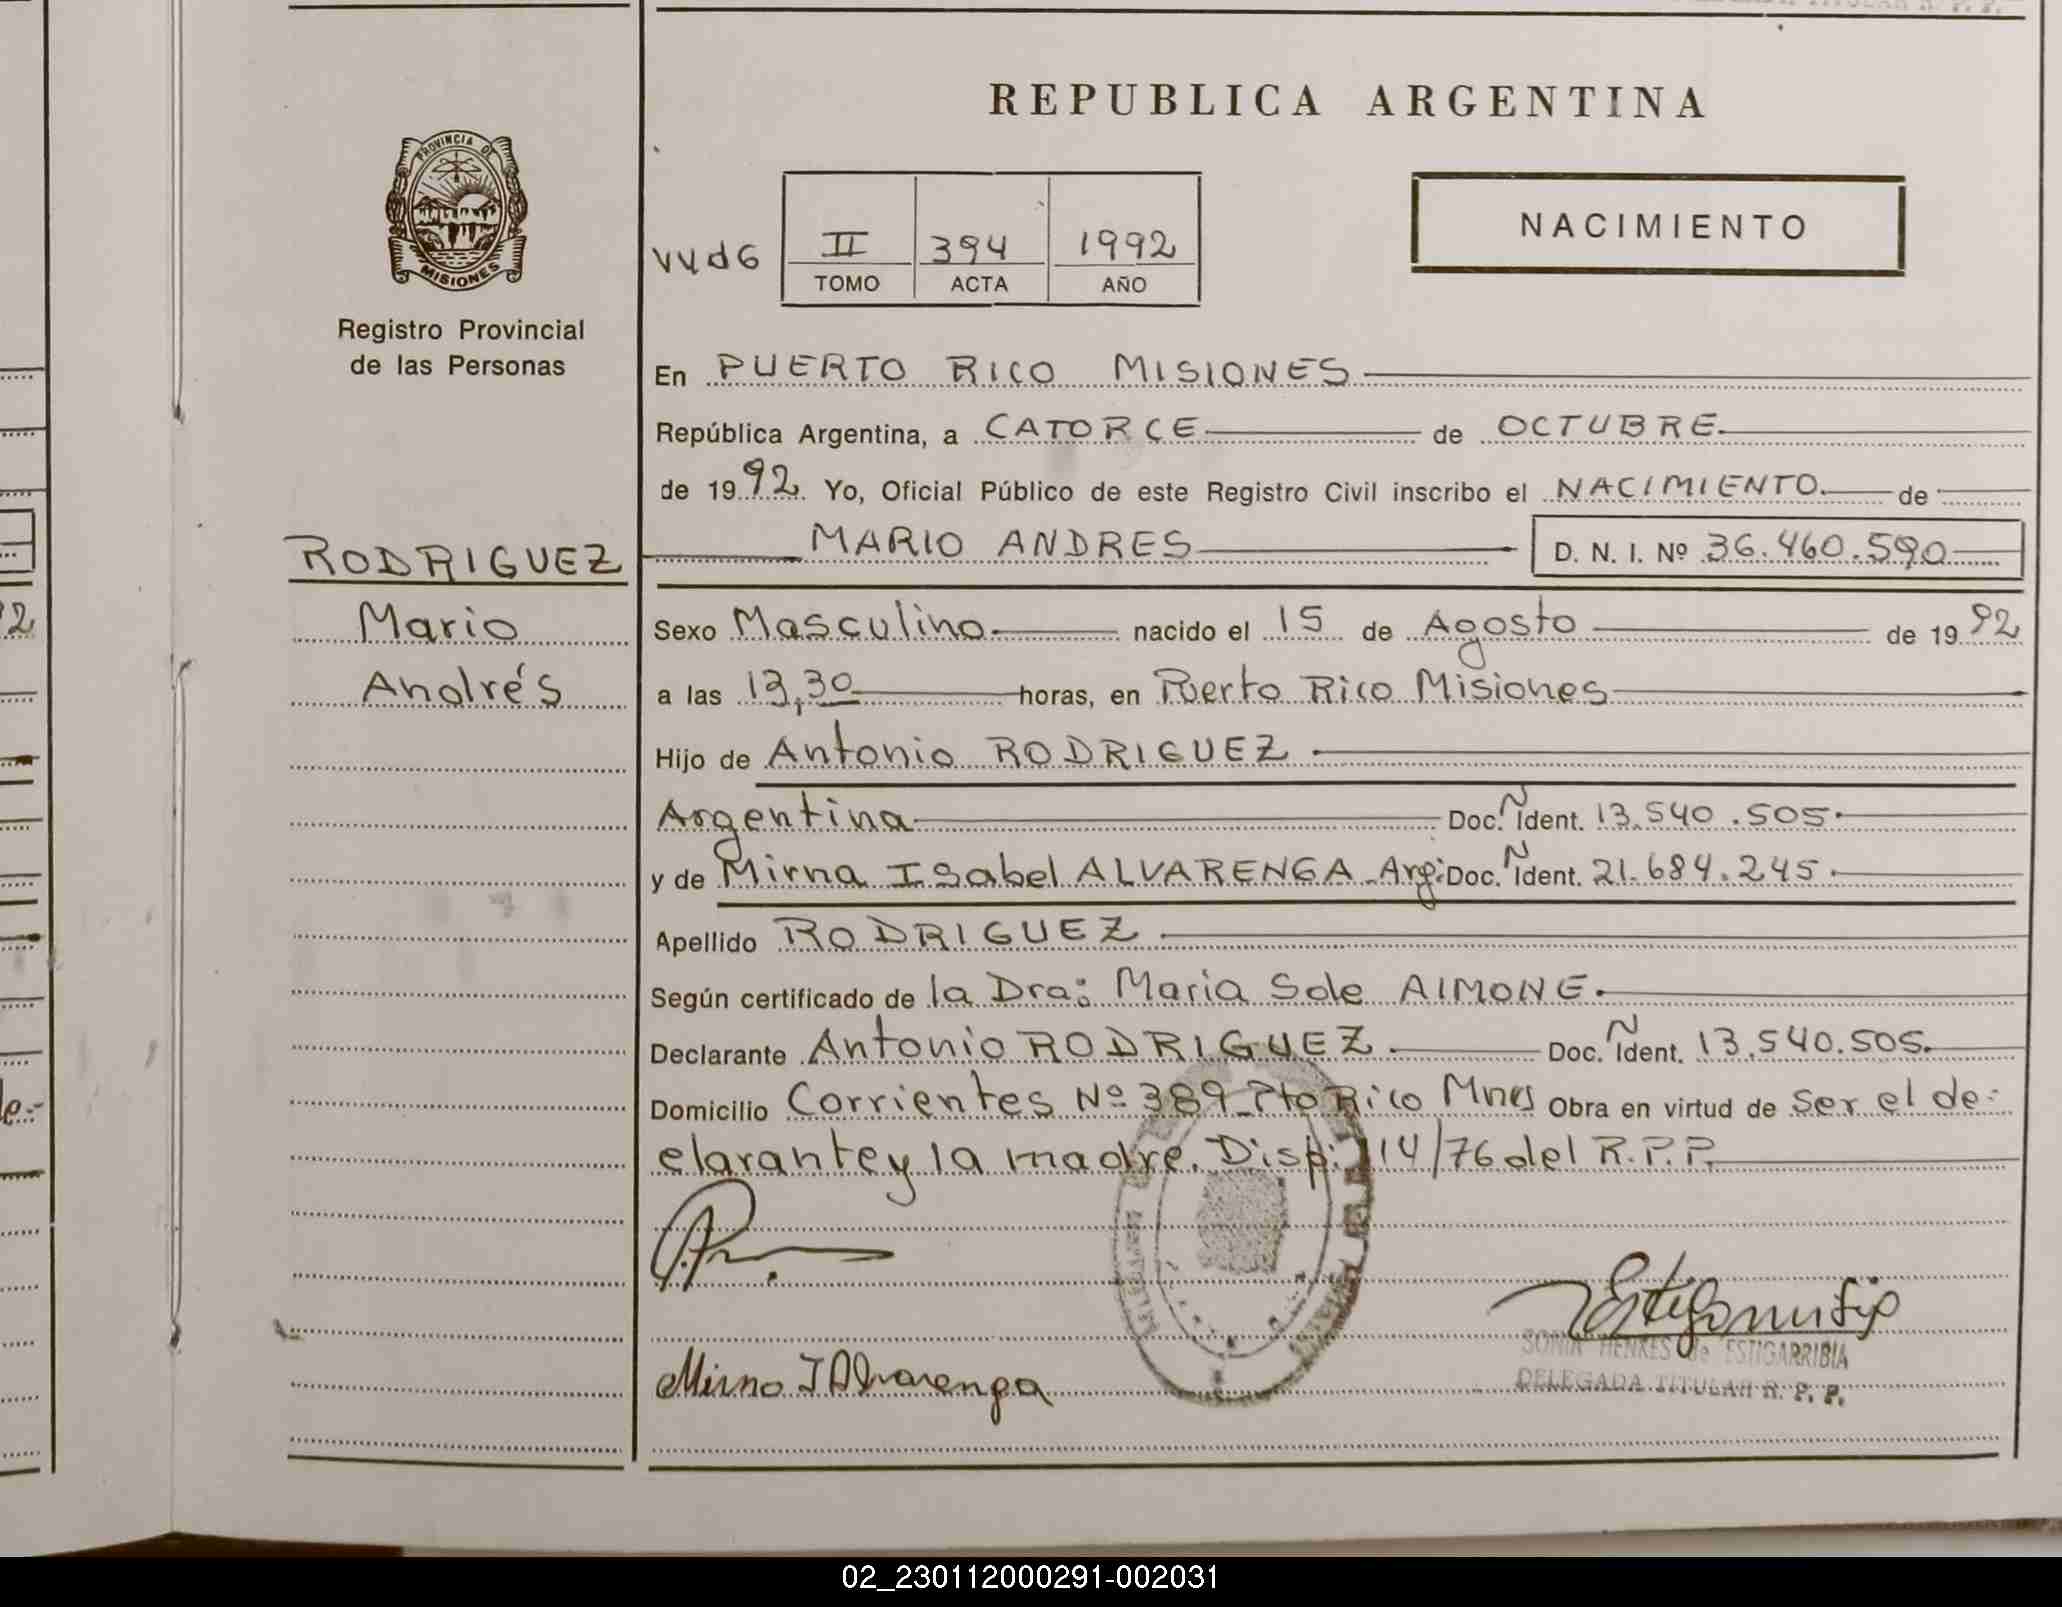 REPUBLICA ARGENTINA
PROVINCIA DE
MISIONES
Registro Provincial
de las Personas
II 394 1992
TOMO ACTA AÑO
NACIMIENTO
En PUERTO RICO MISIONES
República Argentina, a CATORCE de OCTUBRE
de 1992 Yo, Oficial Público de este Registro Civil inscribo el NACIMIENTO de
RODRIGUEZ
Mario
Andrés
MARIO ANDRES D. N. I. Nº 36.460.590
Sexo Masculino nacido el 15 de Agosto de 1992
a las 13,30 horas, en Puerto Rico Misiones
Hijo de Antonio RODRIGUEZ
Argentina Doc. Ñ Ident. 13.540.505
y de Mirna Isabel ALVARENGA Arg: Doc. Ñ Ident. 21.684.245
Apellido RODRIGUEZ
Según certificado de la Dra: Maria Sole AIMONE.
Declarante Antonio RODRIGUEZ Doc. Ñ Ident. 13.540.505.
Domicilio Corrientes Nº 389 Pto Rico Mnes Obra en virtud de ser el de-
clarante y la madre. Disp: 114/76 del R.P.P.
Mirna I Alvarenga
SONIA HENKES de ESTIGARRIBIA
DELEGADA TITULAR R. P. P.
02_230112000291-002031